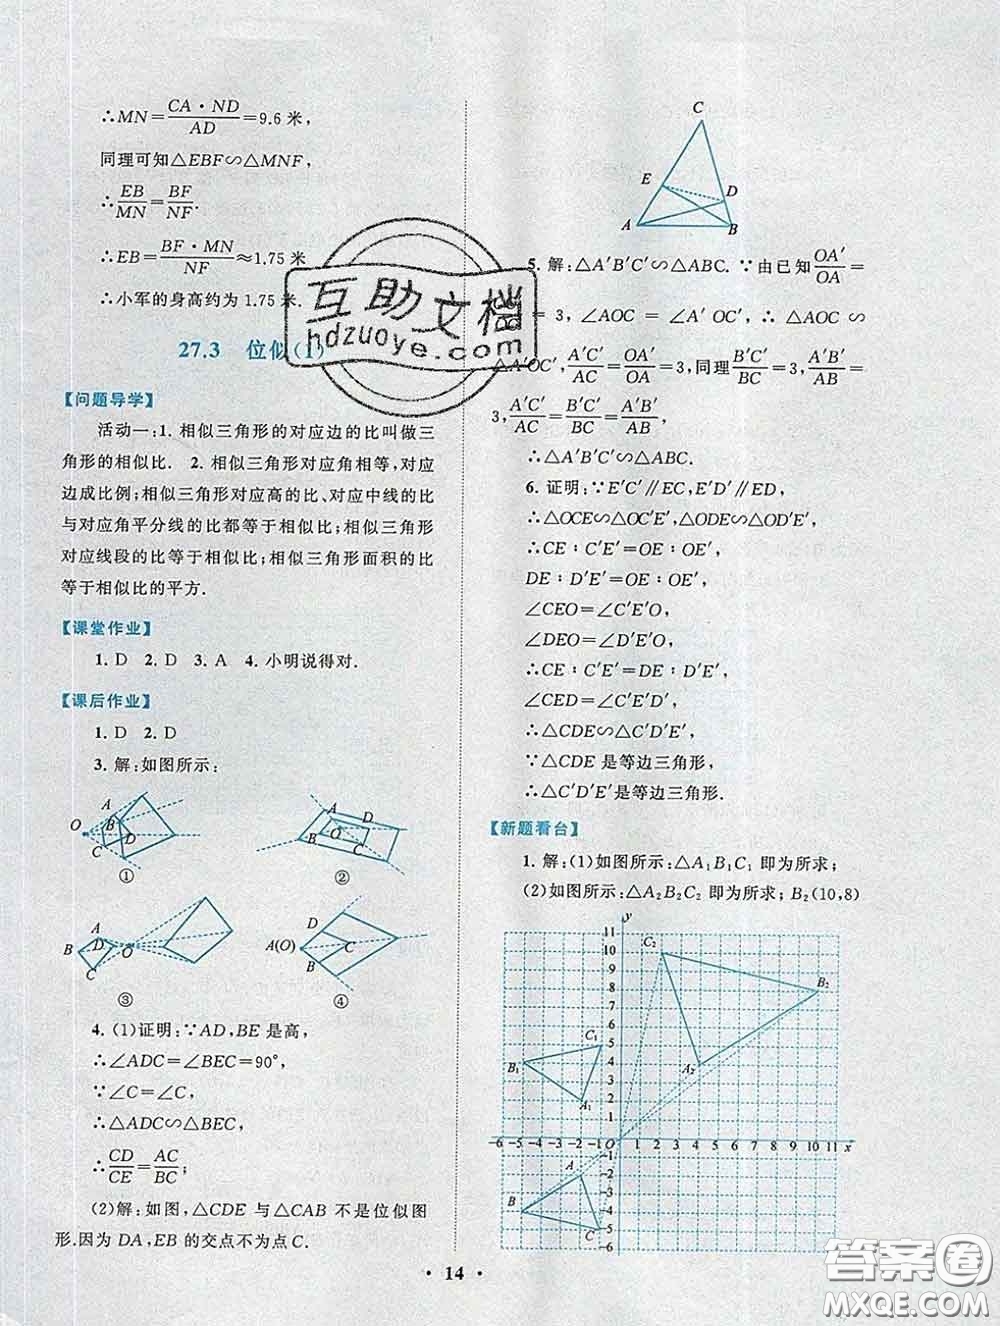 ∴MN=CA·ND/AD=9.6 米，
同理可知△EBF∽△MNF，
∴EB/MN=BF/NF.
∴EB=BF·MN/NF≈1.75 米
∴小军的身高约为 1.75 米.
27.3 位似(1)
【问题导学】
活动一:1. 相似三角形的对应边的比叫做三
角形的相似比. 2. 相似三角形对应角相等,对应
边成比例;相似三角形对应高的比、对应中线的比
与对应角平分线的比都等于相似比;相似三角形
对应线段的比等于相似比;相似三角形面积的比
等于相似比的平方.
【课堂作业】
1. D 2. D 3. A 4. 小明说得对.
【课后作业】
1. D 2. D
3. 解:如图所示:
O A B C D
①
A D B O C
②
A B D O C
③
D A(O) C B
④
4. (1)证明:∵AD,BE 是高,
∴∠ADC=∠BEC=90°,
∵∠C=∠C,
∴△ADC∽△BEC,
∴CD/CE=AC/BC;
(2)解:如图,△CDE 与△CAB 不是位似图
形.因为 DA,EB 的交点不为点 C.
C
E
D
A B
5. 解:△A′B′C′∽△ABC. ∵由已知OA′/OA=
= 3, ∠AOC = ∠A′OC′, ∴ △AOC ∽
△A′OC′,A′C′/AC=OA′/OA=3,同理B′C′/BC=3,A′B′/AB=
3,A′C′/AC=B′C′/BC=A′B′/AB,
∴△A′B′C′∽△ABC.
6. 证明:∵E′C′∥EC,E′D′∥ED,
∴△OCE∽△OC′E′,△ODE∽△OD′E′,
∴CE∶C′E′=OE∶OE′,
DE∶D′E′=OE∶OE′,
∠CEO=∠C′E′O,
∠DEO=∠D′E′O,
∴CE∶C′E′=DE∶D′E′,
∠CED=∠C′E′D′,
∴△CDE∽△C′D′E′,
∵△CDE 是等边三角形,
∴△C′D′E′是等边三角形.
【新题看台】
1. 解:(1)如图所示:△A₁B₁C₁ 即为所求;
(2)如图所示:△A₂B₂C₂ 即为所求;B₂(10,8)
y
11
10
9
8
7
6
5
4
3
2
1
C₂
B₂
C₁
B₁
A₂
A₁
-6 -5 -4 -3 -2 -1 O 1 2 3 4 5 6 7 8 9 10 11 x
-1
-2
-3
-4
-5
-6
A
B
C
· 14 ·
互助文档
hdzuoye.com
答案圈
MXQE.COM